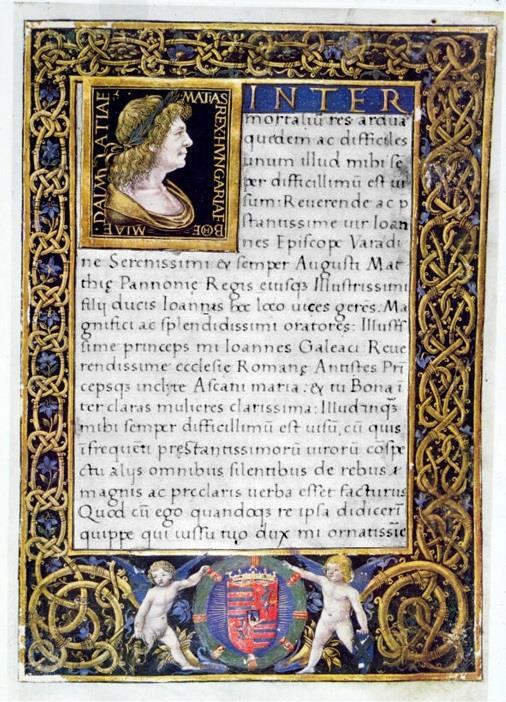 MATIAS REX HVNGARIAE BOE
MIAE DALMATIAE
INTER
mortaliū res ardua
quedem ac difficiles
unum illud mihi se
per difficillimū est ui
sum: Reuerende ac p
stantissime uir Ioan
nes Episcope Varadi
ne Serenissimi & semper Augusti Mat
thię Pannonię Regis eiusqȝ Illustrissimi
filij ducis Ioannis hoc loco uices gerēs: Ma
gnifici ac splendidissimi oratores: Illuss
sime princeps mi Ioannes Galeaci: Reue
rendissime ecclesię Romanę Antistes Prī
cepsqȝ inclyte Ascani maria: & tu Bona ī
ter claras mulieres clarissima: Illud inqȝ
mihi semper difficillimū est uisū, cū quis
ī frequēti pręstantissimorū uirorū cōspe
ctu alijs omnibus silentibus de rebus
magnis ac preclaris uerba esset facturus
Quod cū ego quandoqȝ re ipsa didicerī
quippe qui iussu tuo dux mi ornatissīe